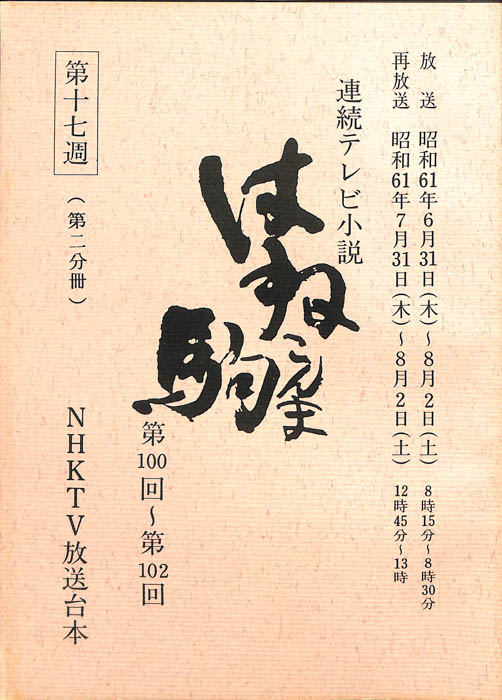 放　送　昭和61年6月31日(木)～8月2日(土)　8時15分～8時30分
再放送　昭和61年7月31日(木)～8月2日(土)　12時45分～13時
連続テレビ小説
はね駒
こんま
第100回～第102回
第十七週
(第二分冊)
NHKTV放送台本